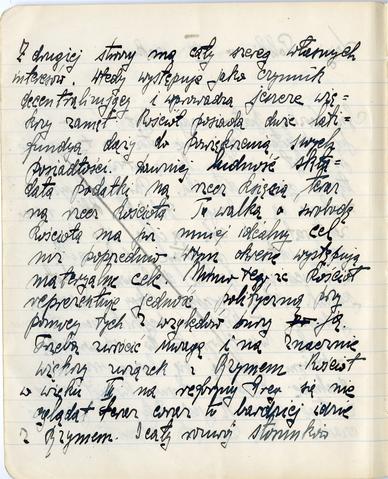 Z drugiej strony ma cały szereg własnych
interesów. Wtedy występuje jako czynnik
decentralizujący i wprowadza jeszcze wię-
kszy zamęt. Kościół posiada duże lati-
fundya dąży do powiększenia swych
posiadłości. Dawniej ludność skła-
dała podatki na rzecz księcia teraz
na rzecz kościoła. Ta walka o swobodę
kościoła ma już mniej idealny cel
niż poprzednio. W tym okresie występują
materjalne cele. Mimo tego że Kościół
reprezentuje jedność polityczną przy
pomocy tych 2 względów burzy ją.
Trzeba zwrócić uwagę i na znacznie
większy związek z Rzymem. Kościół
w wieku na się nie
oglądał teraz coraz to bardziej idzie
z Rzymem. I cały rozwój stosunków